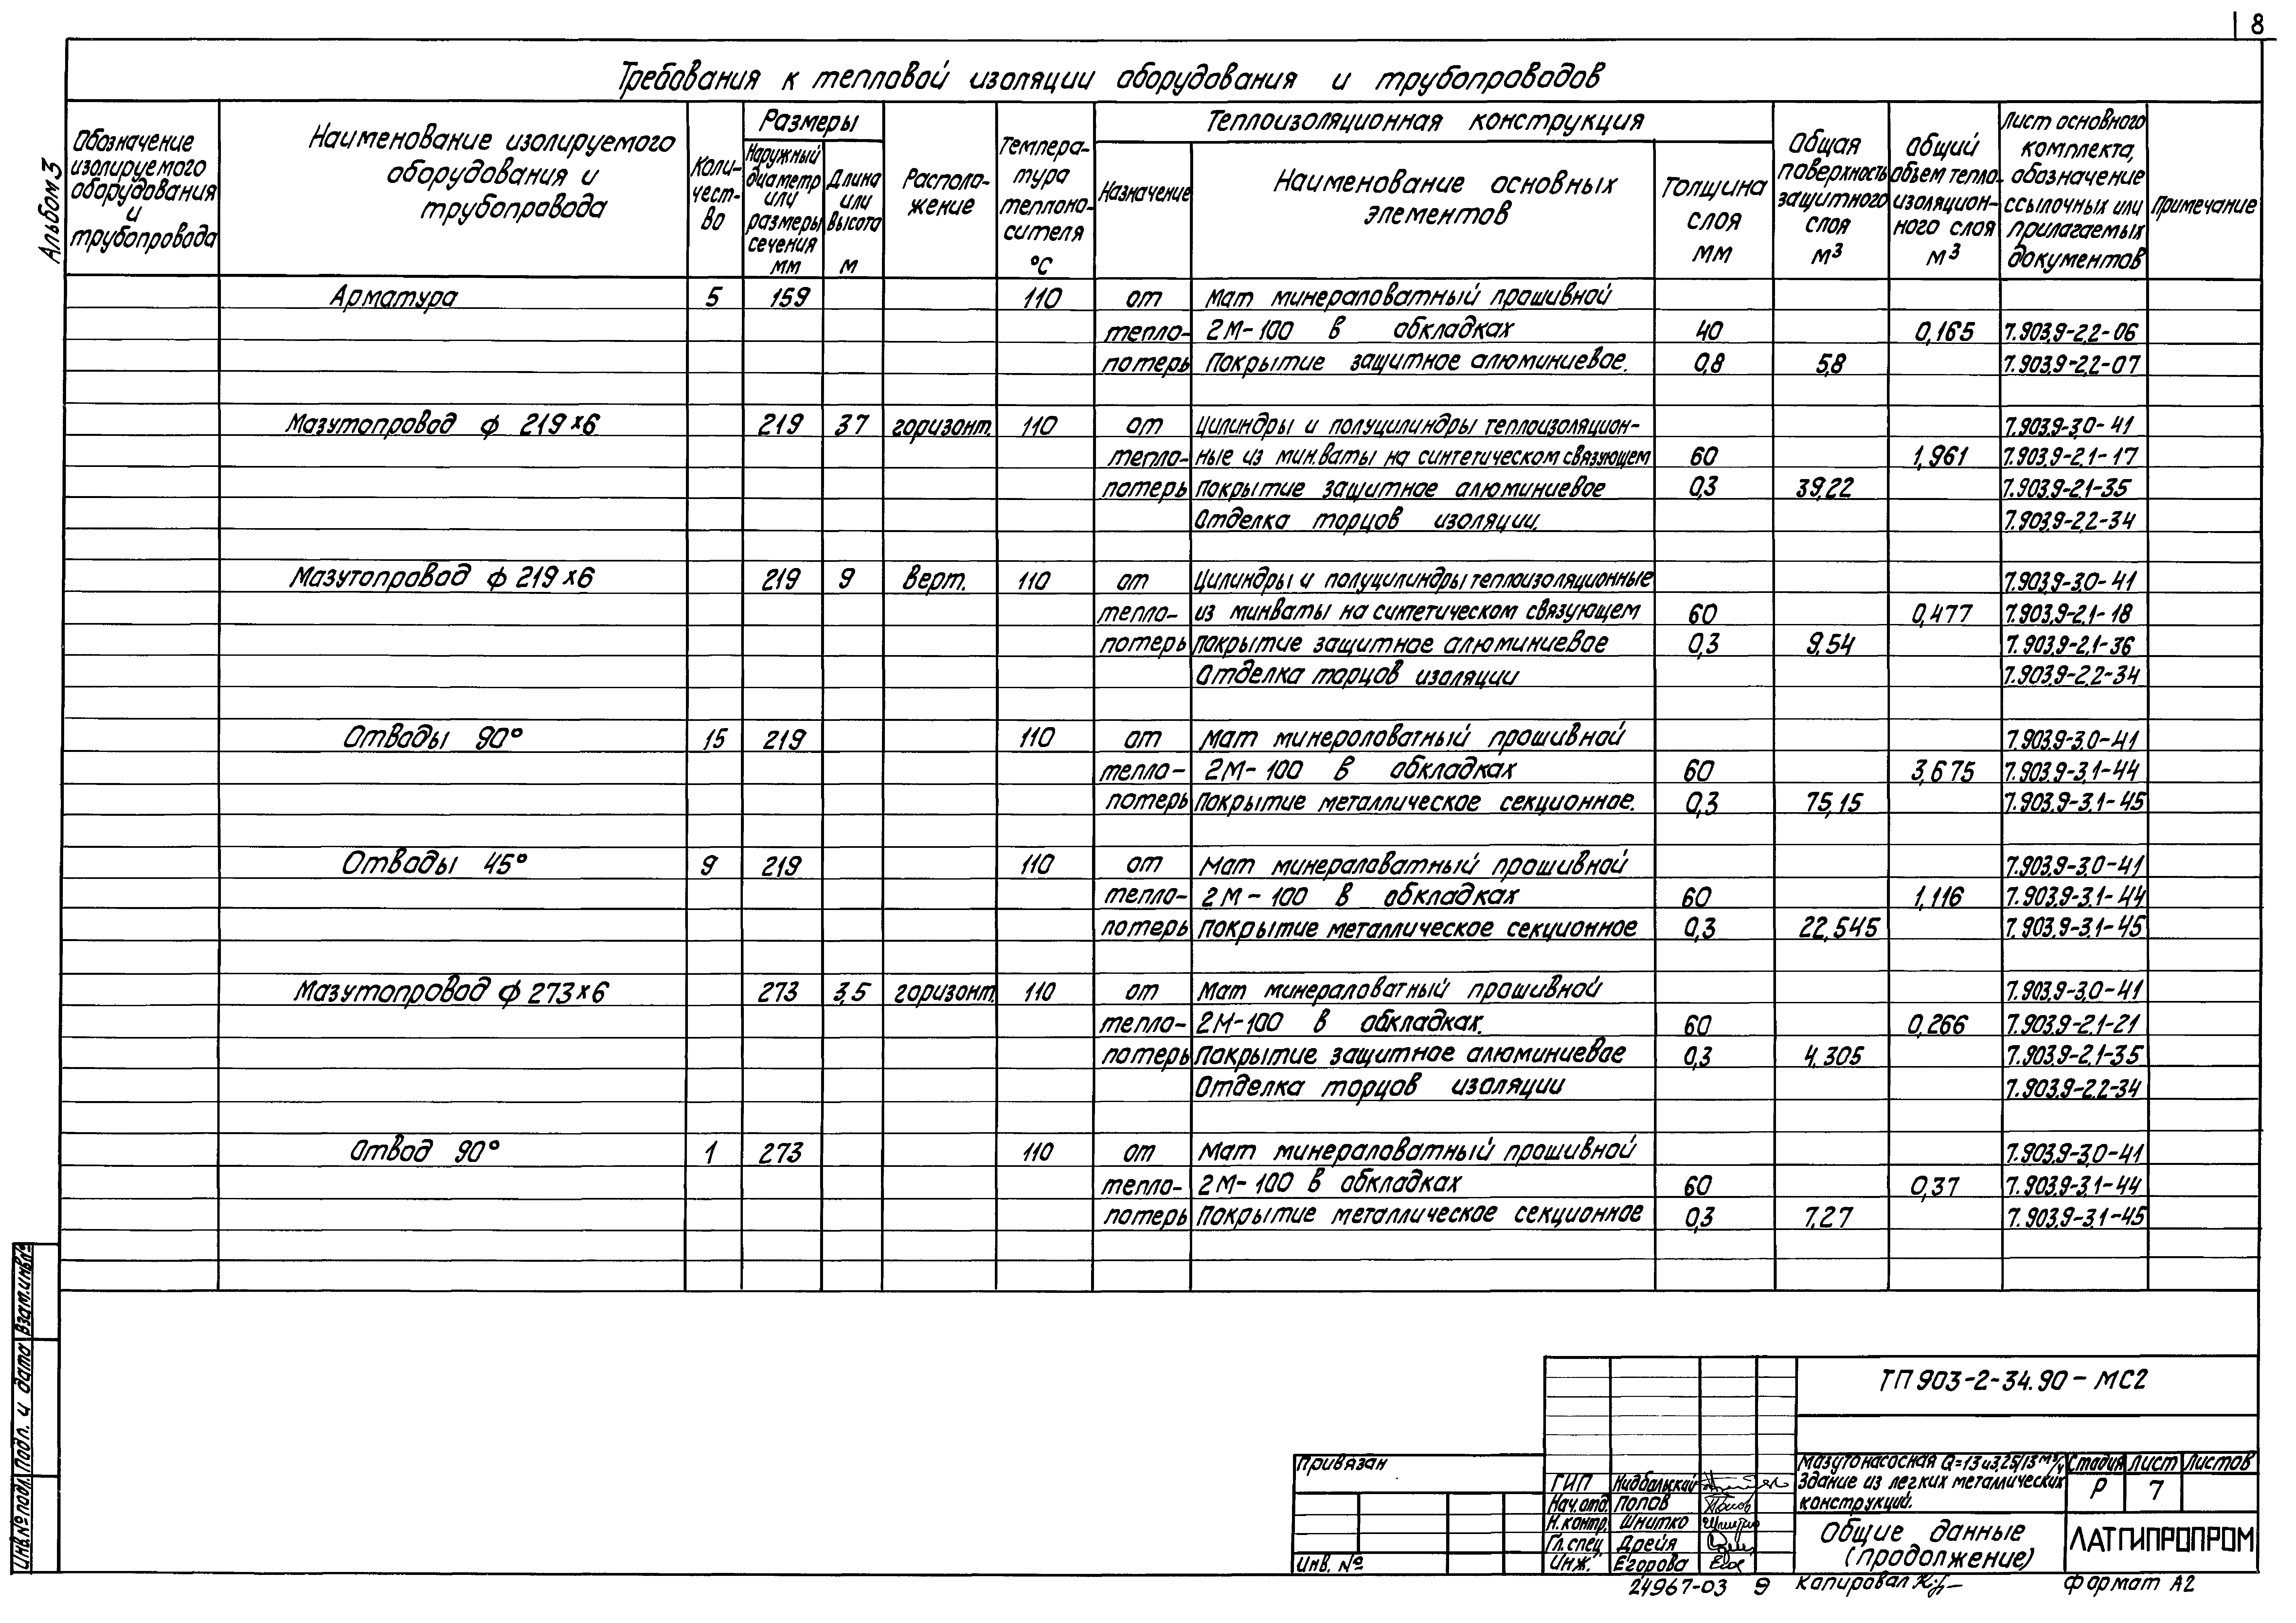 8
Альбом 3
Требования к тепловой изоляции оборудования и трубопроводов
Обозначение изолируемого оборудования и трубопровода
Наименование изолируемого оборудования и трубопровода
Коли-чест-во
Размеры
Наружный диаметр или размеры сечения мм
Длина или высота м
Располо-жение
Темпера-тура теплоно-сителя °С
Теплоизоляционная конструкция
Назначение
Наименование основных элементов
Толщина слоя мм
Общая поверхность защитного слоя м³
Общий объем тепло-изоляцион-ного слоя м³
Лист основного комплекта, обозначение ссылочных или прилагаемых документов
Примечание
Арматура 5 159 110 от Мат минераловатный прошивной
тепло- 2М-100 в обкладках 40 0,165 7.903.9-2.2-06
потерь Покрытие защитное алюминиевое. 0,8 5,8 7.903.9-2.2-07
Мазутопровод ф 219×6 219 37 горизонт. 110 от Цилиндры и полуцилиндры теплоизоляцион- 7.903.9-3.0-41
тепло- ные из мин.ваты на синтетическом связующем 60 1,961 7.903.9-2.1-17
потерь Покрытие защитное алюминиевое 0,3 39,22 7.903.9-2.1-35
Отделка торцов изоляции. 7.903.9-2.2-34
Мазутопровод ф 219×6 219 9 верт. 110 от Цилиндры и полуцилиндры теплоизоляционные 7.903.9-3.0-41
тепло- из минваты на синтетическом связующем 60 0,477 7.903.9-2.1-18
потерь Покрытие защитное алюминиевое 0,3 9,54 7.903.9-2.1-36
Отделка торцов изоляции 7.903.9-2.2-34
Отводы 90° 15 219 110 от Мат минероловатный прошивной 7.903.9-3.0-41
тепло- 2М-100 в обкладках 60 3,675 7.903.9-3.1-44
потерь Покрытие металлическое секционное. 0,3 75,15 7.903.9-3.1-45
Отводы 45° 9 219 110 от Мат минераловатный прошивной 7.903.9-3.0-41
тепло- 2М-100 в обкладках 60 1,116 7.903.9-3.1-44
потерь Покрытие металлическое секционное 0,3 22,545 7.903.9-3.1-45
Мазутопровод ф 273×6 273 3,5 горизонт. 110 от Мат минераловатный прошивной 7.903.9-3.0-41
тепло- 2М-100 в обкладках. 60 0,266 7.903.9-2.1-21
потерь Покрытие защитное алюминиевое 0,3 4,305 7.903.9-2.1-35
Отделка торцов изоляции 7.903.9-2.2-34
Отвод 90° 1 273 110 от Мат минераловатный прошивной 7.903.9-3.0-41
тепло- 2М-100 в обкладках 60 0,37 7.903.9-3.1-44
потерь Покрытие металлическое секционное 0,3 7,27 7.903.9-3.1-45
Инв.№ подл. Подп. и дата Взам.инв.№
Привязан
Инв. №
ТП 903-2-34.90-МС2
ГИП Нидбальский
Нач.отд. Попов
Н.контр. Шнитко
Гл.спец. Дрейя
Инж. Егорова
Мазутонасосная Q=13 и 3,25/13 м³/ч
Здание из легких металлических
конструкций.
Стадия Лист Листов
Р 7
Общие данные
(продолжение)
ЛАТГИПРОПРОМ
24967-03 9 Копировал Формат А2